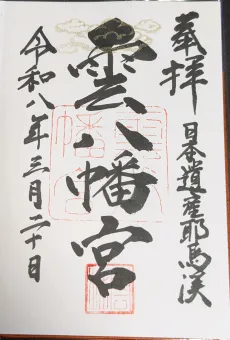 奉拝
日本遺産耶馬渓
雲八幡宮
令和八年三月二十日